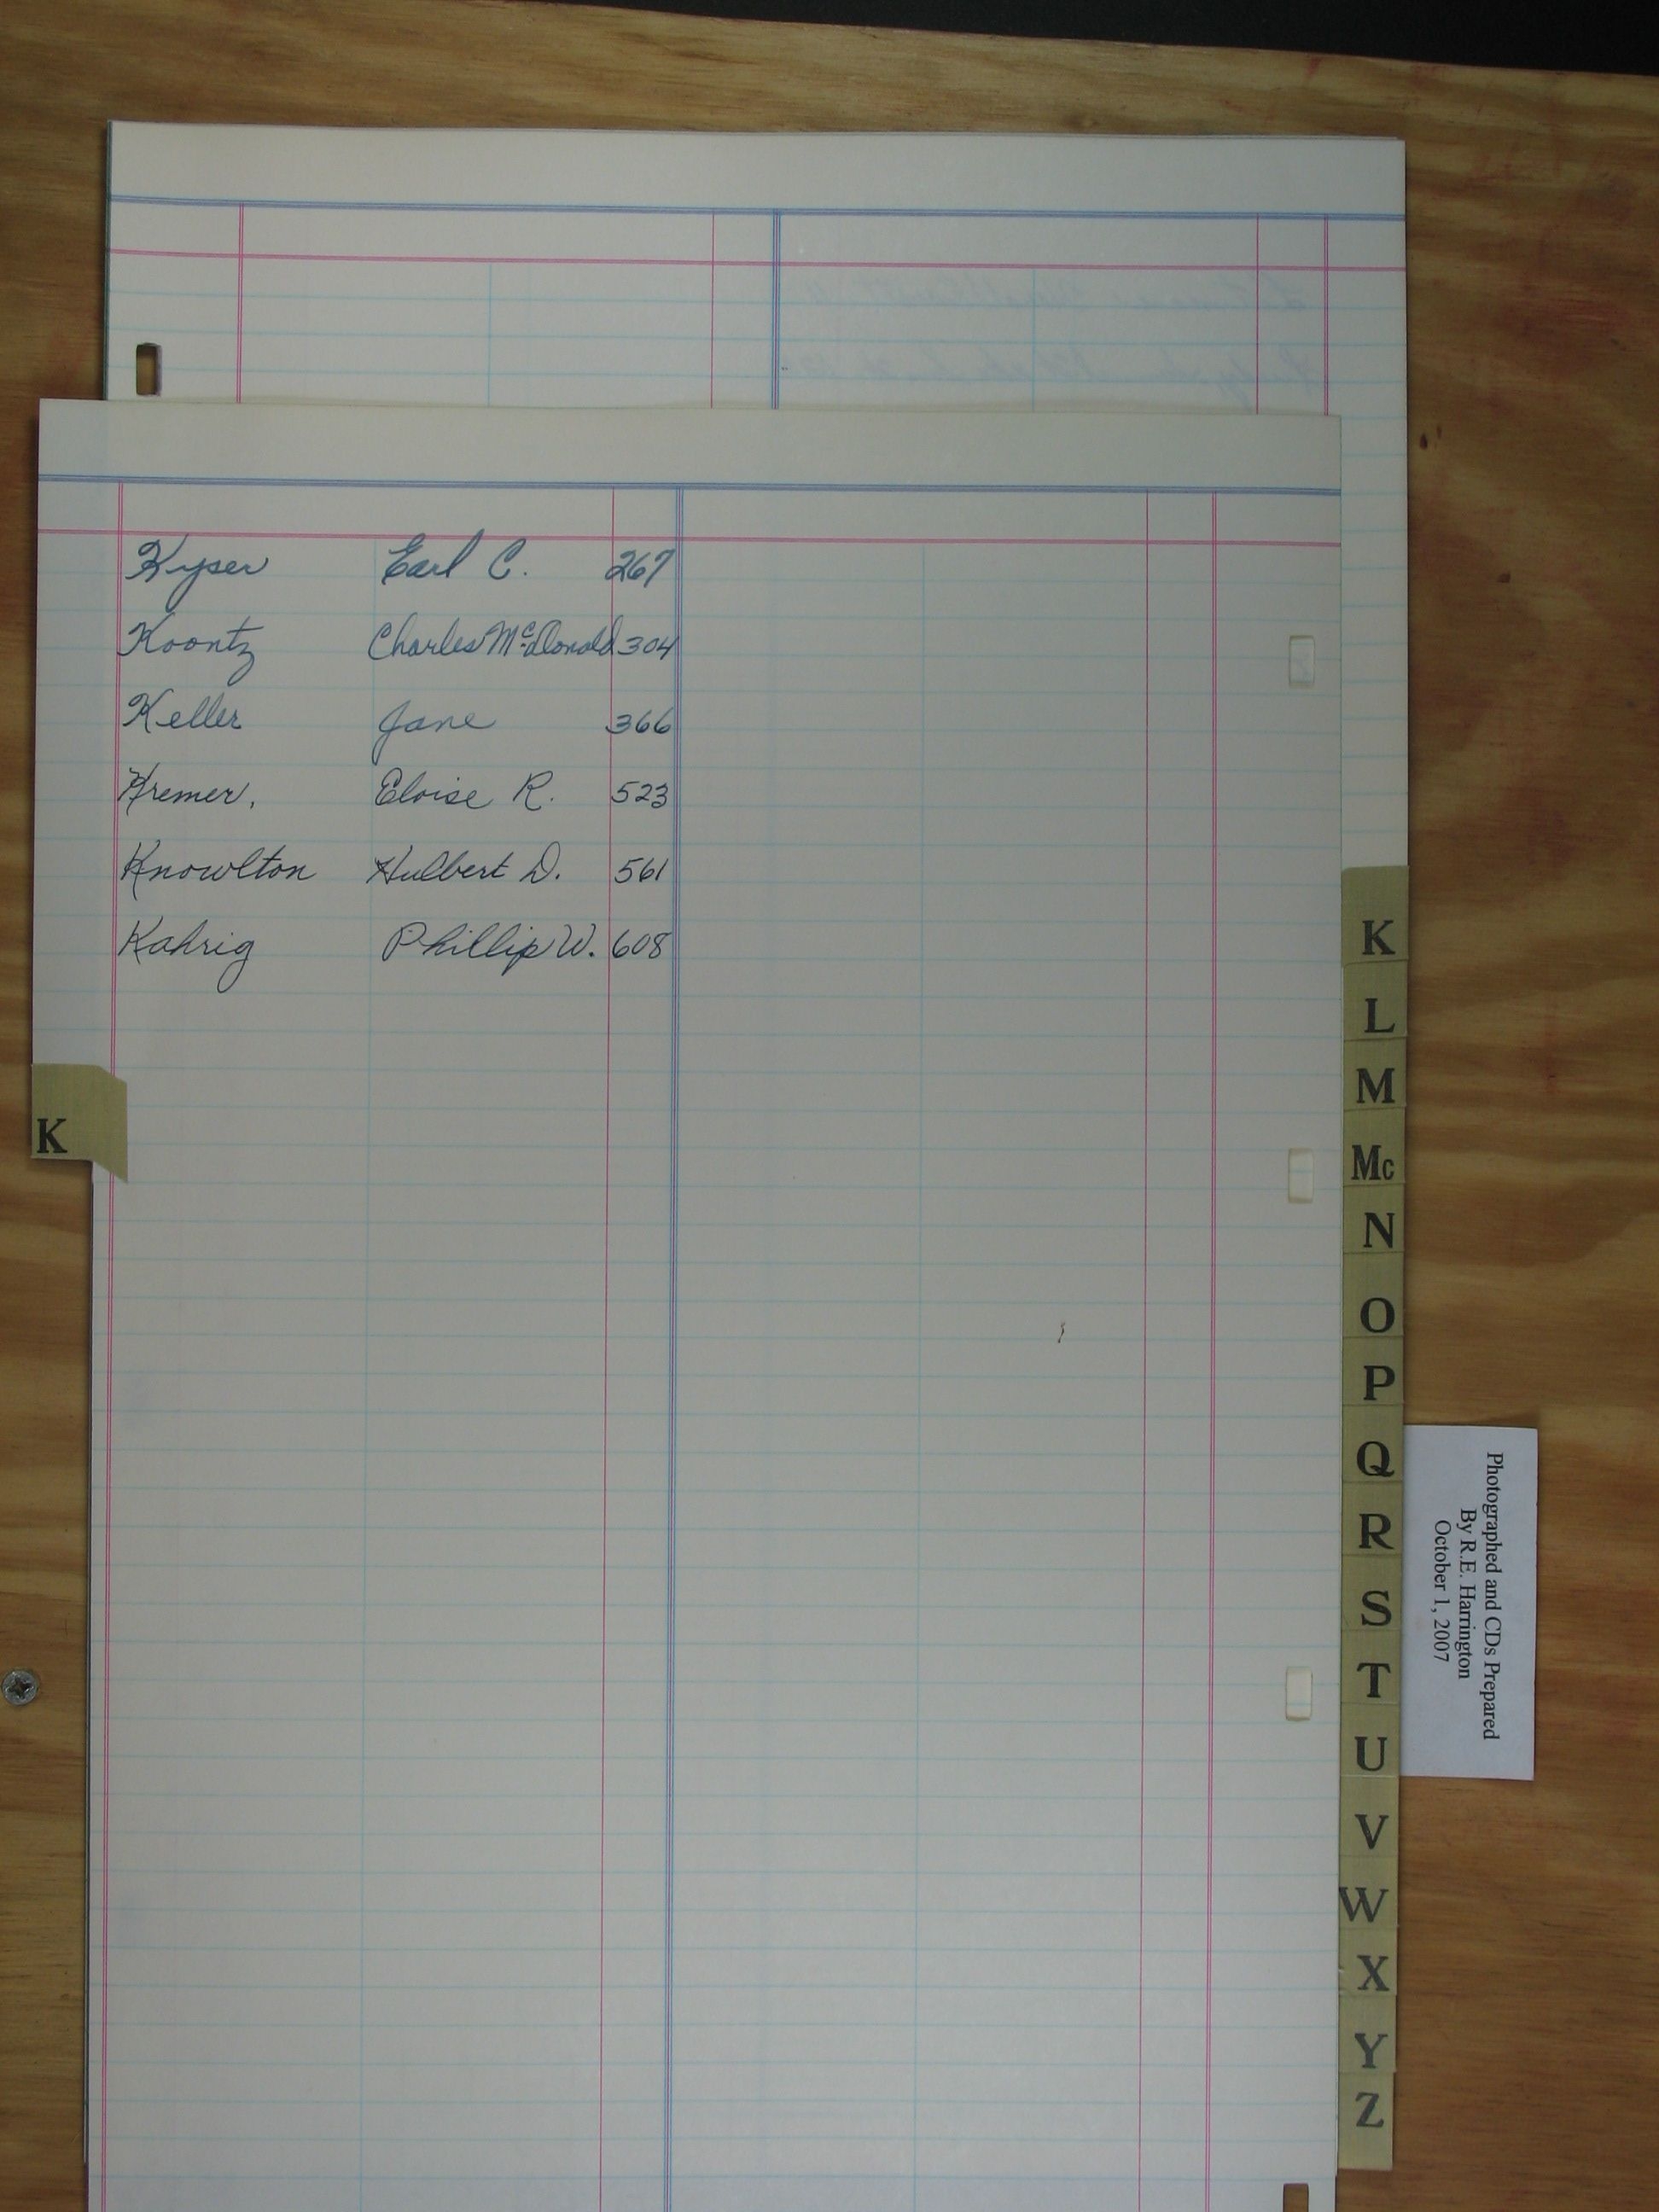 Kyser Earl C. 267
Koontz Charles McDonald 304
Keller Jane 366
Kremer, Eloise R. 523
Knowlton Hulbert D. 561
Kahrig Phillip W. 608
K
K
L
M
Mc
N
O
P
Q
R
S
T
U
V
W
X
Y
Z
Photographed and CDs Prepared
By R.E. Harrington
October 1, 2007